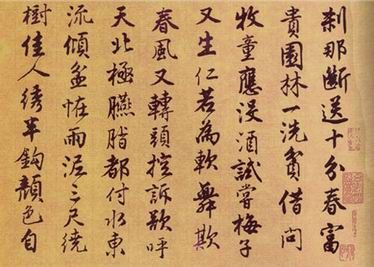 刹那斷送十分春富
貴園林一洗貧借問
牧童應没酒試嘗梅子
又生仁若為軟舞欺
春風又轉頭控訴欲呼
天北極臙脂都付水東
流傾盆恠雨泥三尺繞
樹佳人綉半鈎顔色自